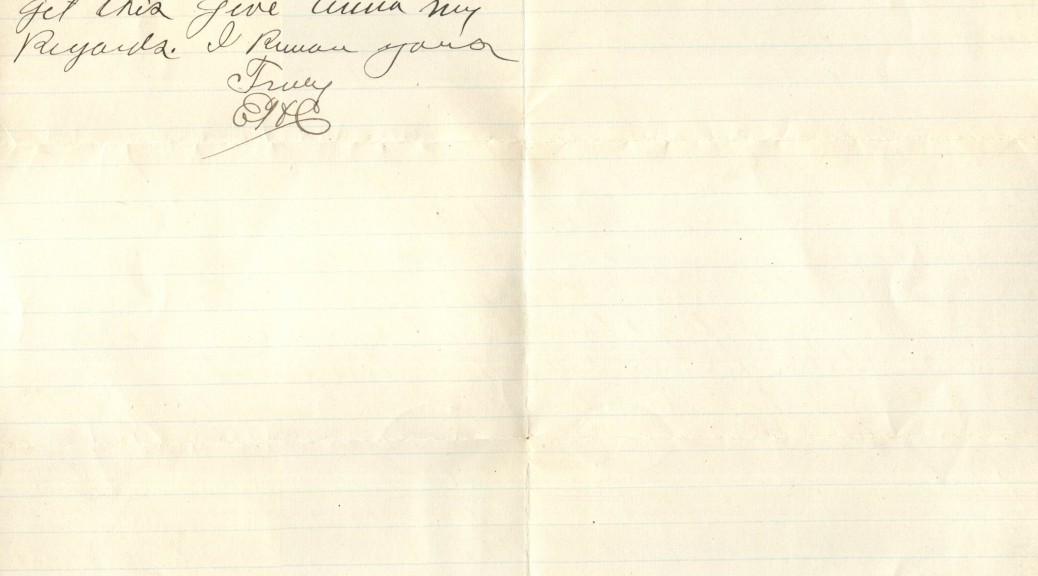 get this give Anna my
Regards. I Remain yours
Truly